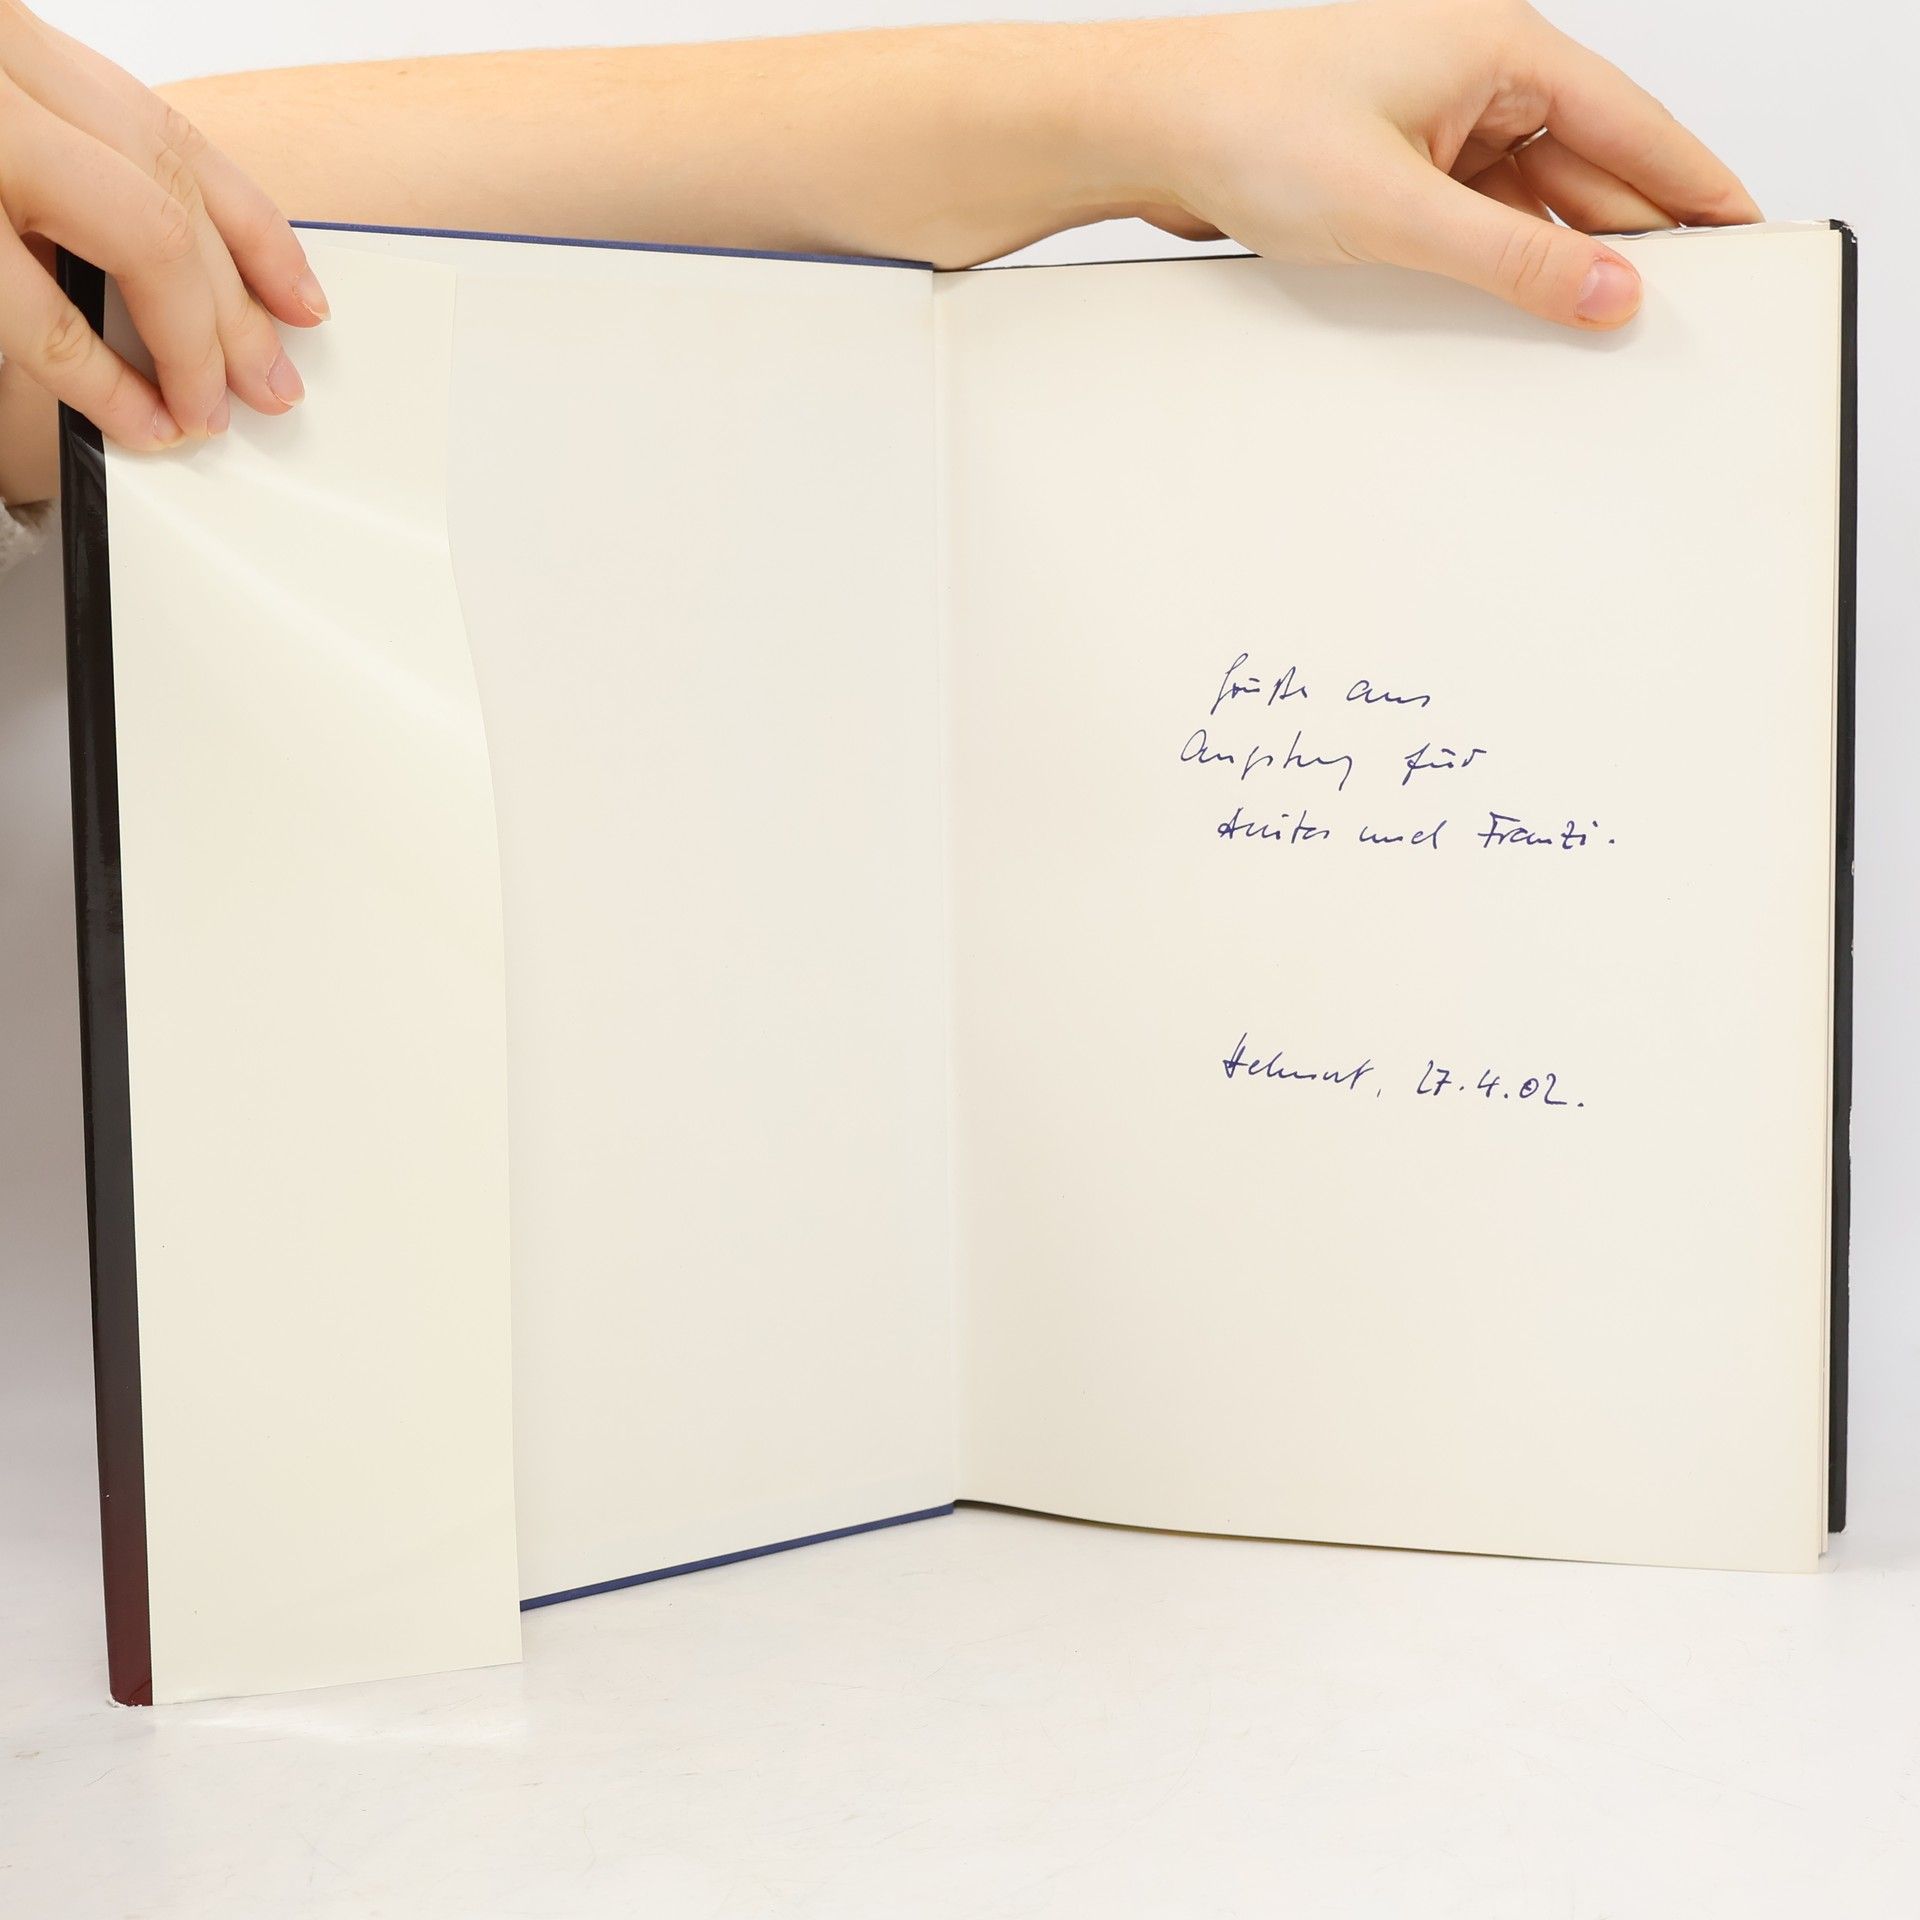 Grüße aus
Augsburg für
Anita und Franzi.
Helmut, 27.4.02.